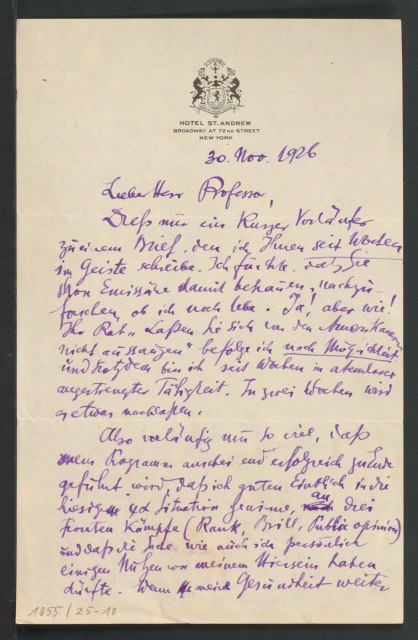 HOTEL ST. ANDREW
BROADWAY AT 72ND STREET
NEW YORK
30. Nov. 1926
Lieber Herr Professor!
Dieß nur ein kurzer Vorläufer
zu einem Brief, den ich Ihnen seit Wochen
im Geiste schreibe. Ich fürchte, daß Sie
schon Emissäre damit betrauen, nachzu-
forschen, ob ich noch lebe. Ja! aber wie!
Ihr Rat „Laßen Sie sich von den Amerikanern
nicht aussaugen" befolge ich nach Möglichkeit
und trotzdem bin ich seit Wochen in atemloser
angestrengter Tätigkeit. In zwei Wochen wird
es etwas nachlaßen.
Also vorläufig nur so viel, daß
mein Programm anscheinend erfolgreich zu Ende
geführt wird, daß ich guten Einblick in die
hiesige Situation gewinne, an drei
Fronten kämpfe (Rank, Brill, Public opinion)
und daß die Sache wie auch ich persönlich
einigen Nutzen von meinem Hiersein haben
dürfte. Wenn meine Gesundheit weiter
1055/25-10